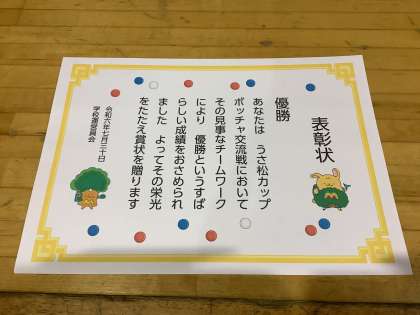 表彰状
優勝
あなたは　うさ松カップ
ボッチャ交流戦において
その見事なチームワーク
により　優勝というすば
らしい成績をおさめられ
ました　よってその栄光
をたたえ賞状を贈ります
令和六年七月二十日
学校運営委員会